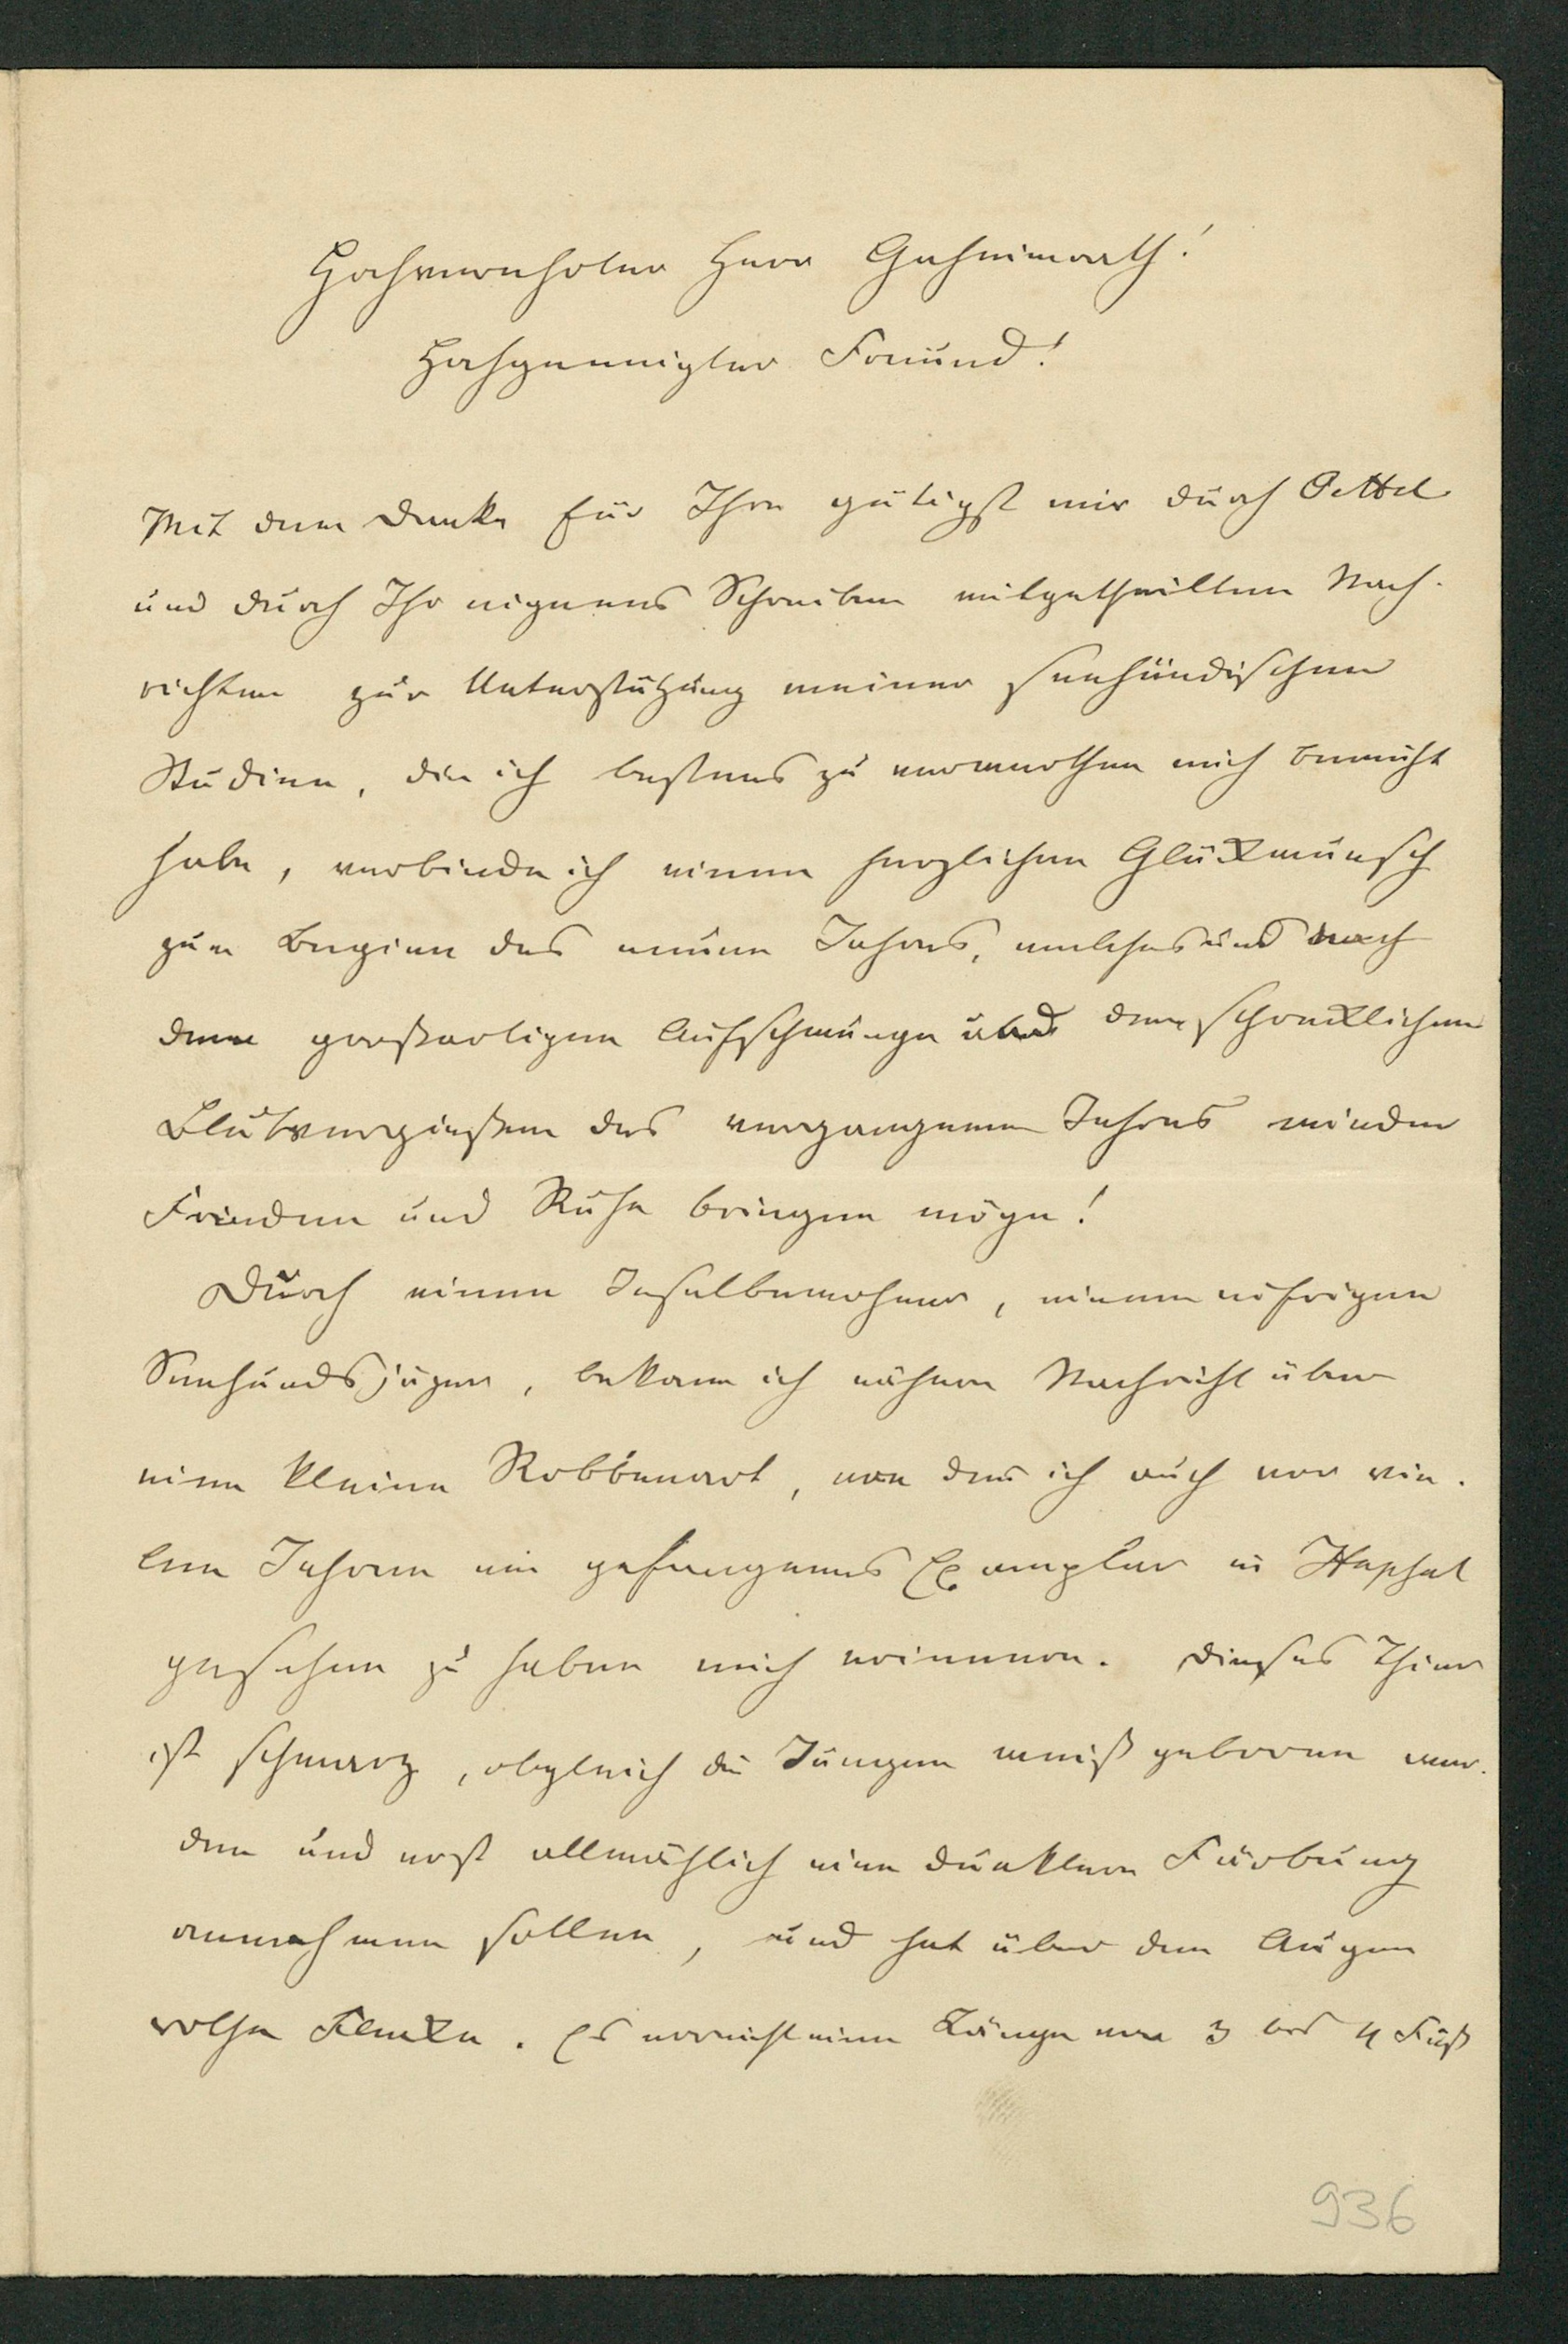 Hochverehrter Herr Geheimrath!
Hochgeneigter Freund!
Mit dem Danke für Ihre gütigst mir durch Oettel
und durch Ihr eigenes Schreiben mitgetheilten Nach-
richten zur Unterstützung meiner seehündischen
Studien, die ich bestens zu verwerthen mich bemüht
habe, verbinde ich einen herzlichen Glückwunsch
zum Beginn des neuen Jahres, welches uns nach
dem großartigen Aufschwunge und dem schrecklichen
Blutvergießen des vergangenen Jahres wieder
Frieden und Ruhe bringen möge!
Durch einen Inselbewohner, einen eifrigen
Seehundsjäger, bekam ich nähere Nachricht über
eine kleine Robbenart, von der ich auch vor vie-
len Jahren ein gefangenes Exemplar in Hapsal
gesehen zu haben mich erinnere. Dieses Thier
ist schwarz, obgleich die Jungen weiß geboren wer-
den und erst allmählich eine dunklere Färbung
annehmen sollen, und hat über den Augen
rothe Flecke. Es erreicht eine Länge von 3 bis 4 Fuß
936